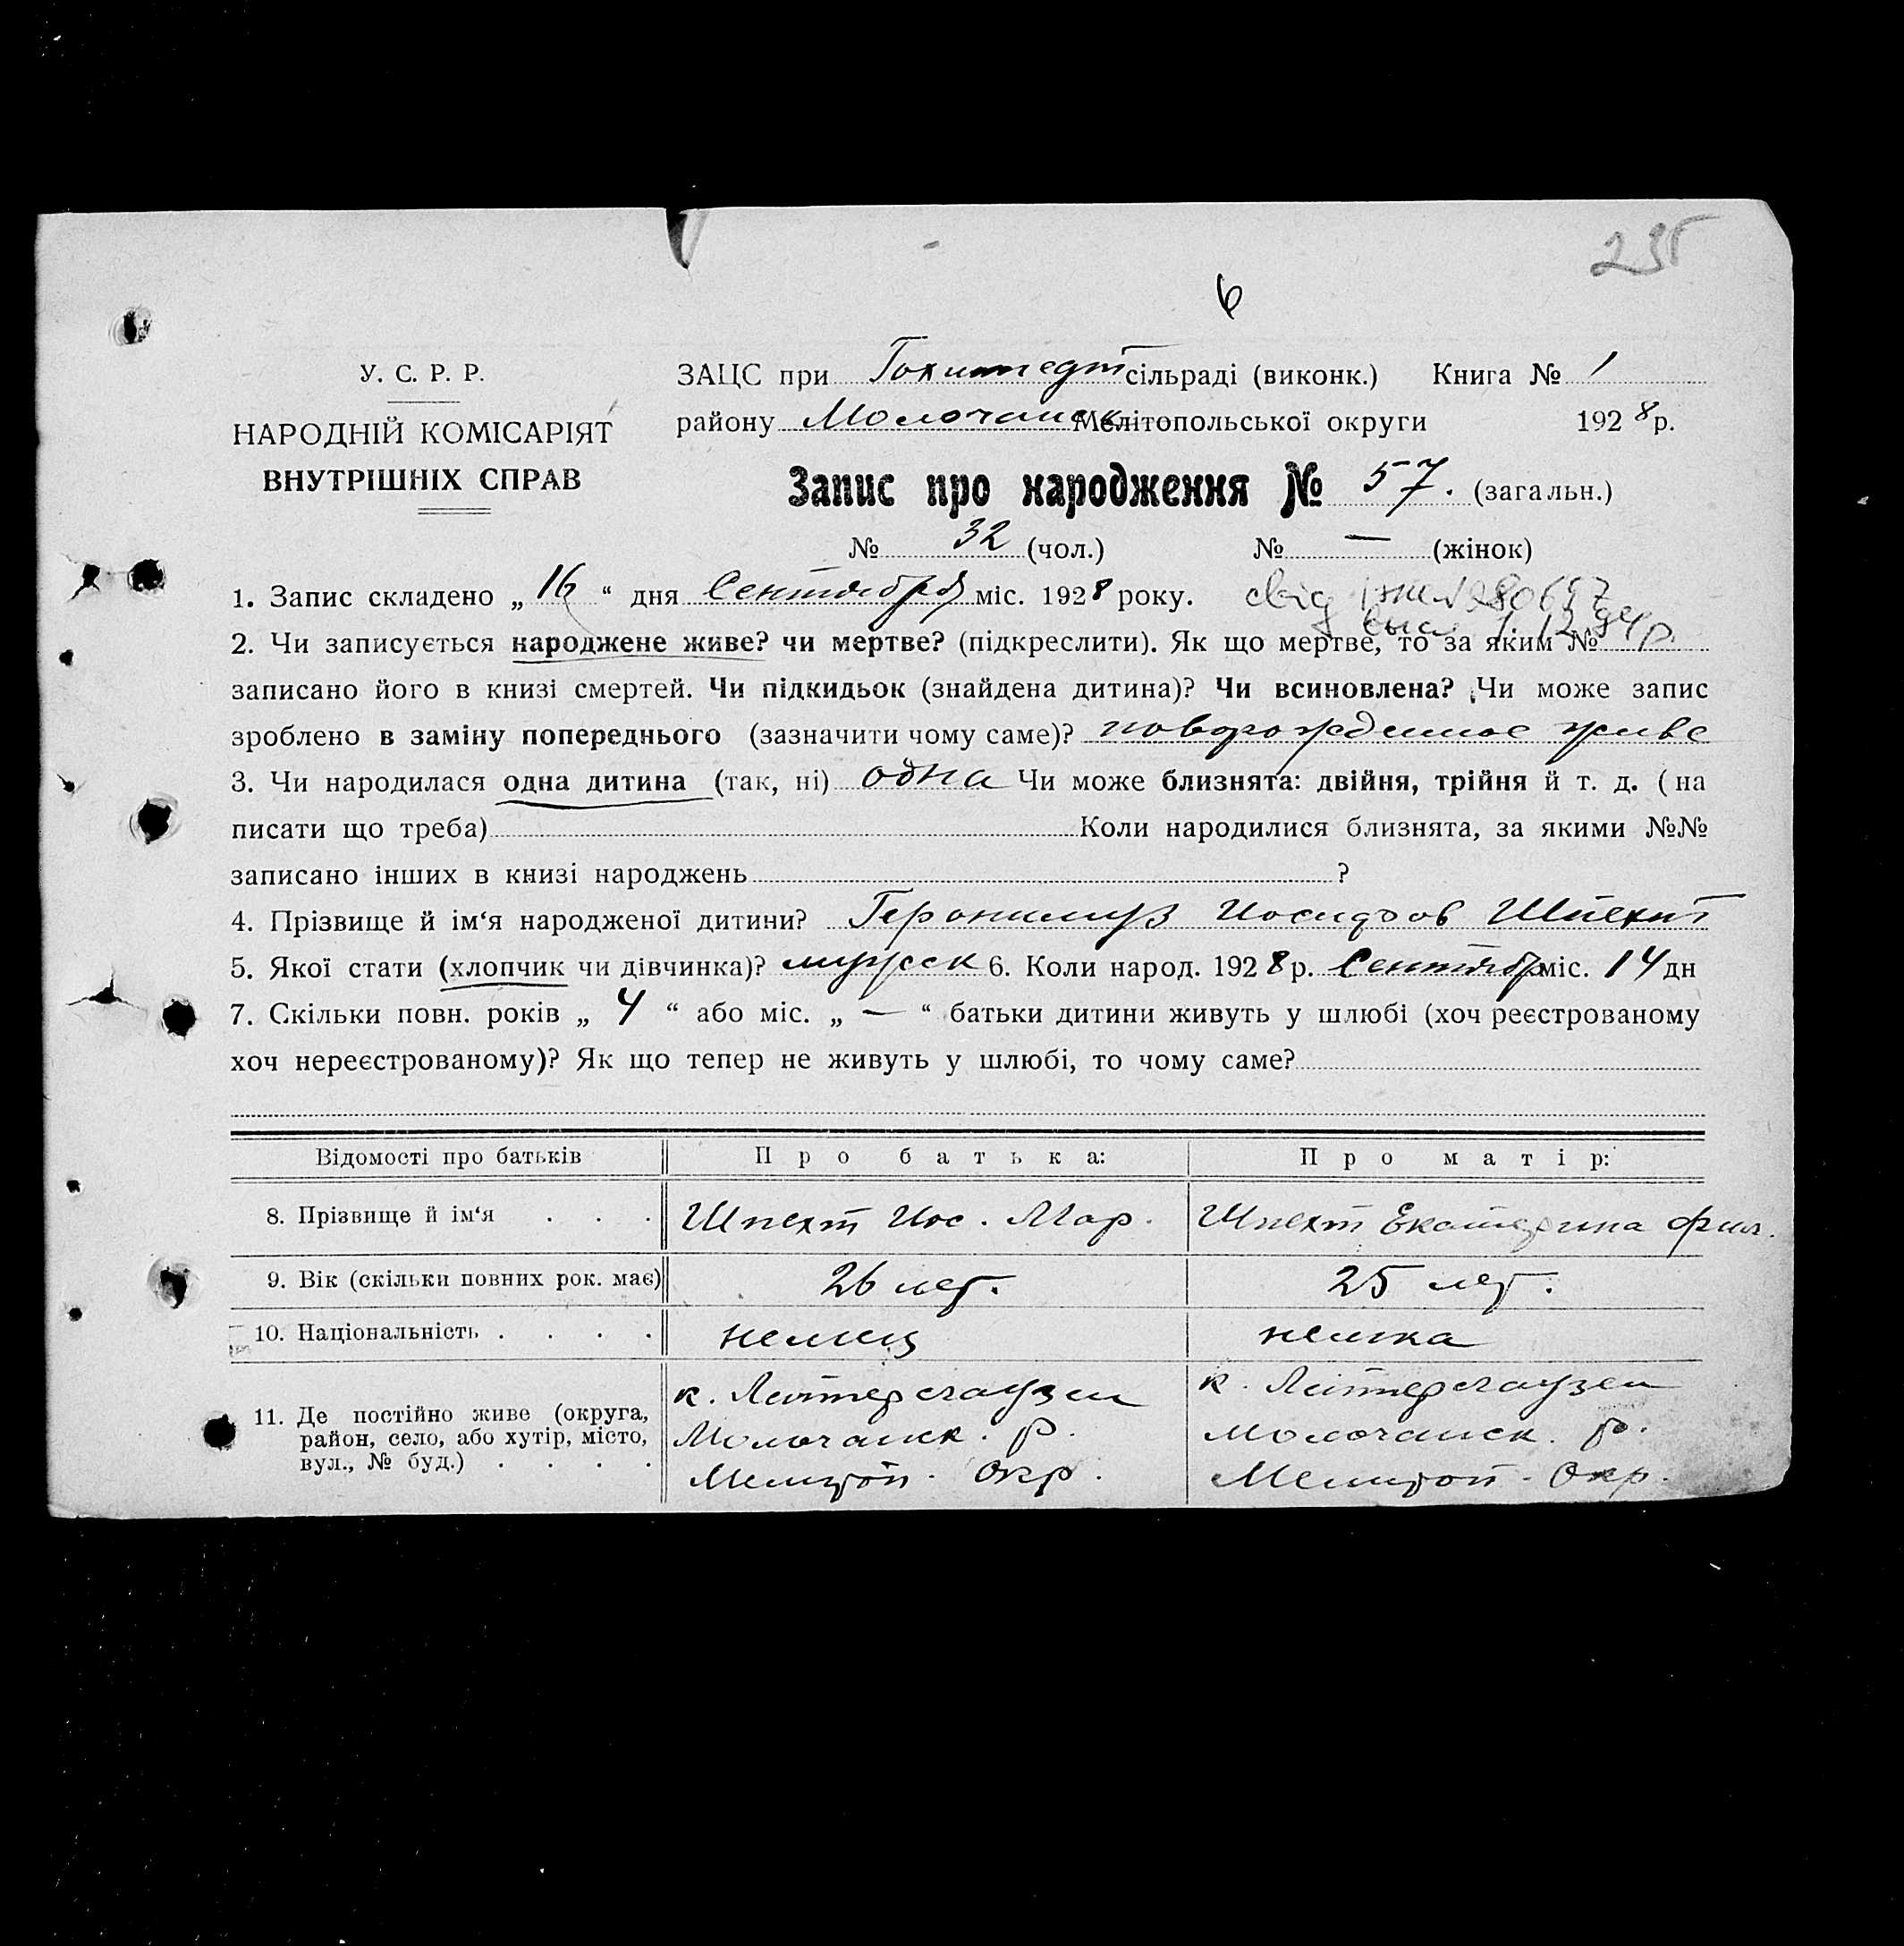 235
6
У. С. Р. Р.
НАРОДНІЙ КОМІСАРІЯТ
ВНУТРІШНІХ СПРАВ
ЗАЦС при Гохштедт сільраді (виконк.) Книга № 1
району Молочанск Мелітопольської округи 1928 р.
Запис про народження № 57. (загальн.)
№ 32 (чол.) № — (жінок)
1. Запис складено „ 16 “ дня Сентября міс. 1928 року. свід
2. Чи записується народжене живе? чи мертве? (підкреслити). Як що мертве, то за яким №
записано його в книзі смертей. Чи підкидьок (знайдена дитина)? Чи всиновлена? Чи може запис
зроблено в заміну попереднього (зазначити чому саме)? новорожденное живе
3. Чи народилася одна дитина (так, ні) одна Чи може близнята: двійня, трійня й т. д. (на
писати що треба) Коли народилися близнята, за якими №№
записано інших в книзі народжень ?
4. Прізвище й ім‘я народженої дитини? Геронимуз Иосифов Шпехт
5. Якої стати (хлопчик чи дівчинка)? мужск 6. Коли народ. 1928 р. Сентябр міс. 14 дн
7. Скільки повн. років „ 4 “ або міс. „ — “ батьки дитини живуть у шлюбі (хоч реєстрованому
хоч нереєстрованому)? Як що тепер не живуть у шлюбі, то чому саме?
Відомості про батьків Про батька: Про матір:
8. Прізвище й ім‘я . . . Шпехт Иос. Мар. Шпехт Екатерина Фил.
9. Вік (скільки повних рок. має) 26 лет. 25 лет.
10. Національність . . . . немец немка
11. Де постійно живе (округа, район, село, або хутір, місто, вул., № буд.) . . . .
к. Лейтерсгаузен
Молочанск. р.
Мелитоп. Окр.
к. Лейтерсгаузен
Молочанск. р.
Мелитоп. Окр.